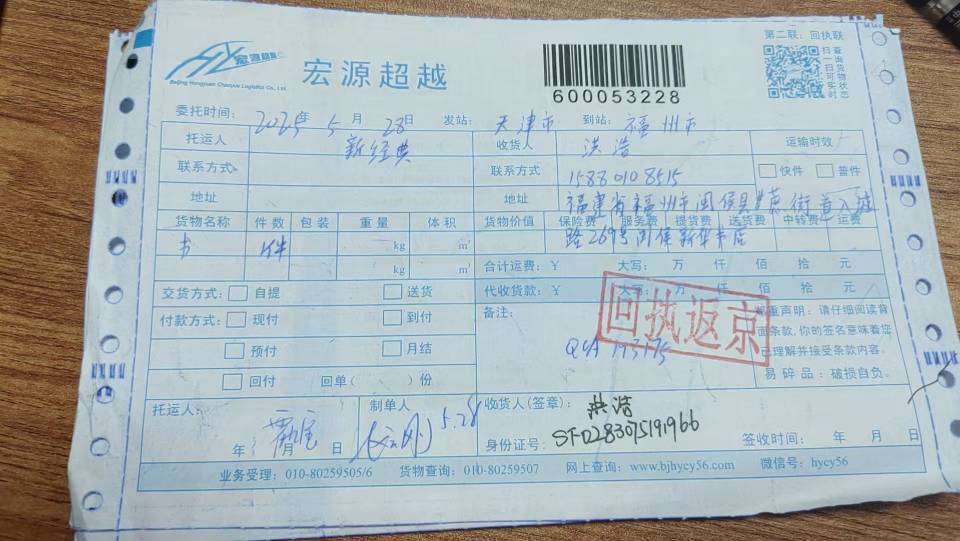 宏源超越
Beijing Hongyuan Chaoyue Logistics Co., Ltd.
宏源超越
600053228
第二联：回执联
扫一扫可实时查询货物状态
委托时间： 2025年 5月 28日 发站： 天津市 到站： 福州市
托运人 新经典 收货人 洪浩 运输时效
联系方式 联系方式 15880108515 快件 普件
地址 地址 福建省福州市闽侯县 街
路269号闽侯新华书店
货物名称 件数 包装 重量 体积 货物价值 保险费 服务费 提货费 送货费 中转费 运费
书 件 kg m³
kg m³ 合计运费：￥ 大写： 万 仟 佰 拾 元
交货方式： 自提 送货 代收货款：￥ 大写： 万 仟 佰 拾 元
付款方式： 现付 到付 备注：
预付 月结
回付 回单（ ）份
回执返京
郑重声明：请仔细阅读背
面条款，你的签名意味着您
已理解并接受条款内容。
易碎品：破损自负。
托运人： 年 月 日
制单人 5.28
收货人(签章)： 洪浩
身份证号： SF0283075191966 签收时间： 年 月 日
业务受理：010-80259505/6 货物查询：010-80259507 网上查询：www.bjhycy56.com 微信号：hycy56